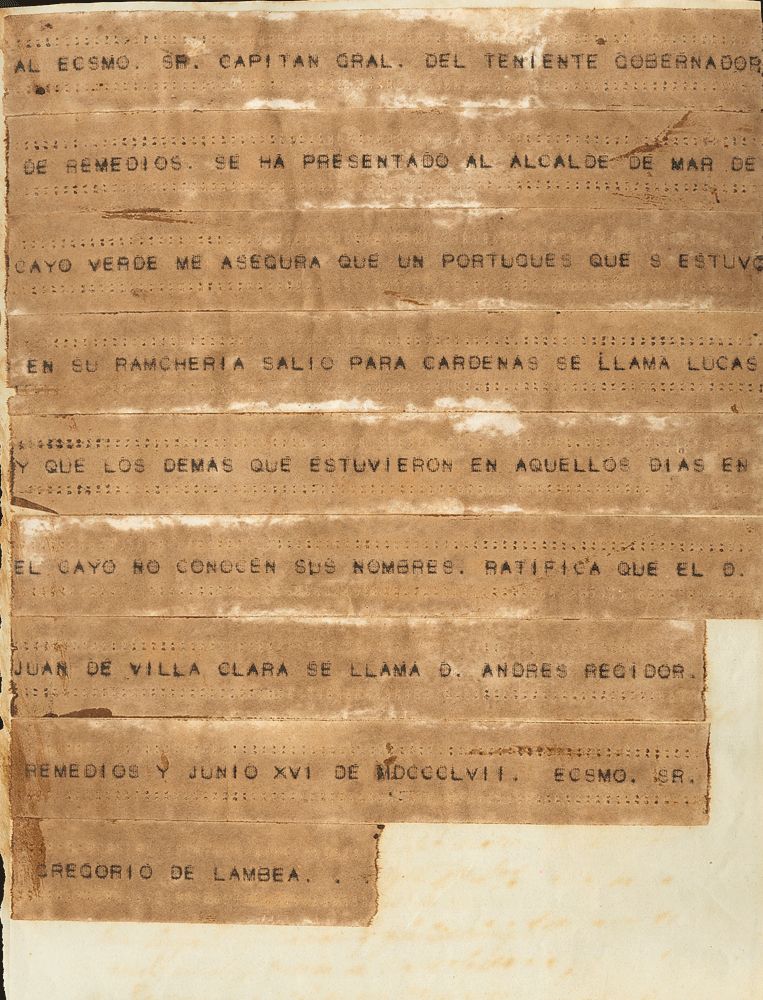 AL ECSMO. SR. CAPITAN GRAL. DEL TENIENTE GOBERNADOR
DE REMEDIOS. SE HA PRESENTADO AL ALCALDE DE MAR DE
CAYO VERDE ME ASEGURA QUE UN PORTUGUES QUE S ESTUVO
EN SU RAMCHERIA SALIO PARA CARDENAS SE LLAMA LUCAS
Y QUE LOS DEMAS QUE ESTUVIERON EN AQUELLOS DIAS EN
EL CAYO NO CONOCEN SUS NOMBRES. RATIFICA QUE EL D.
JUAN DE VILLA CLARA SE LLAMA D. ANDRES REGIDOR.
REMEDIOS Y JUNIO XVI DE MDCCCLVII. ECSMO. SR.
GREGORIO DE LAMBEA. . .